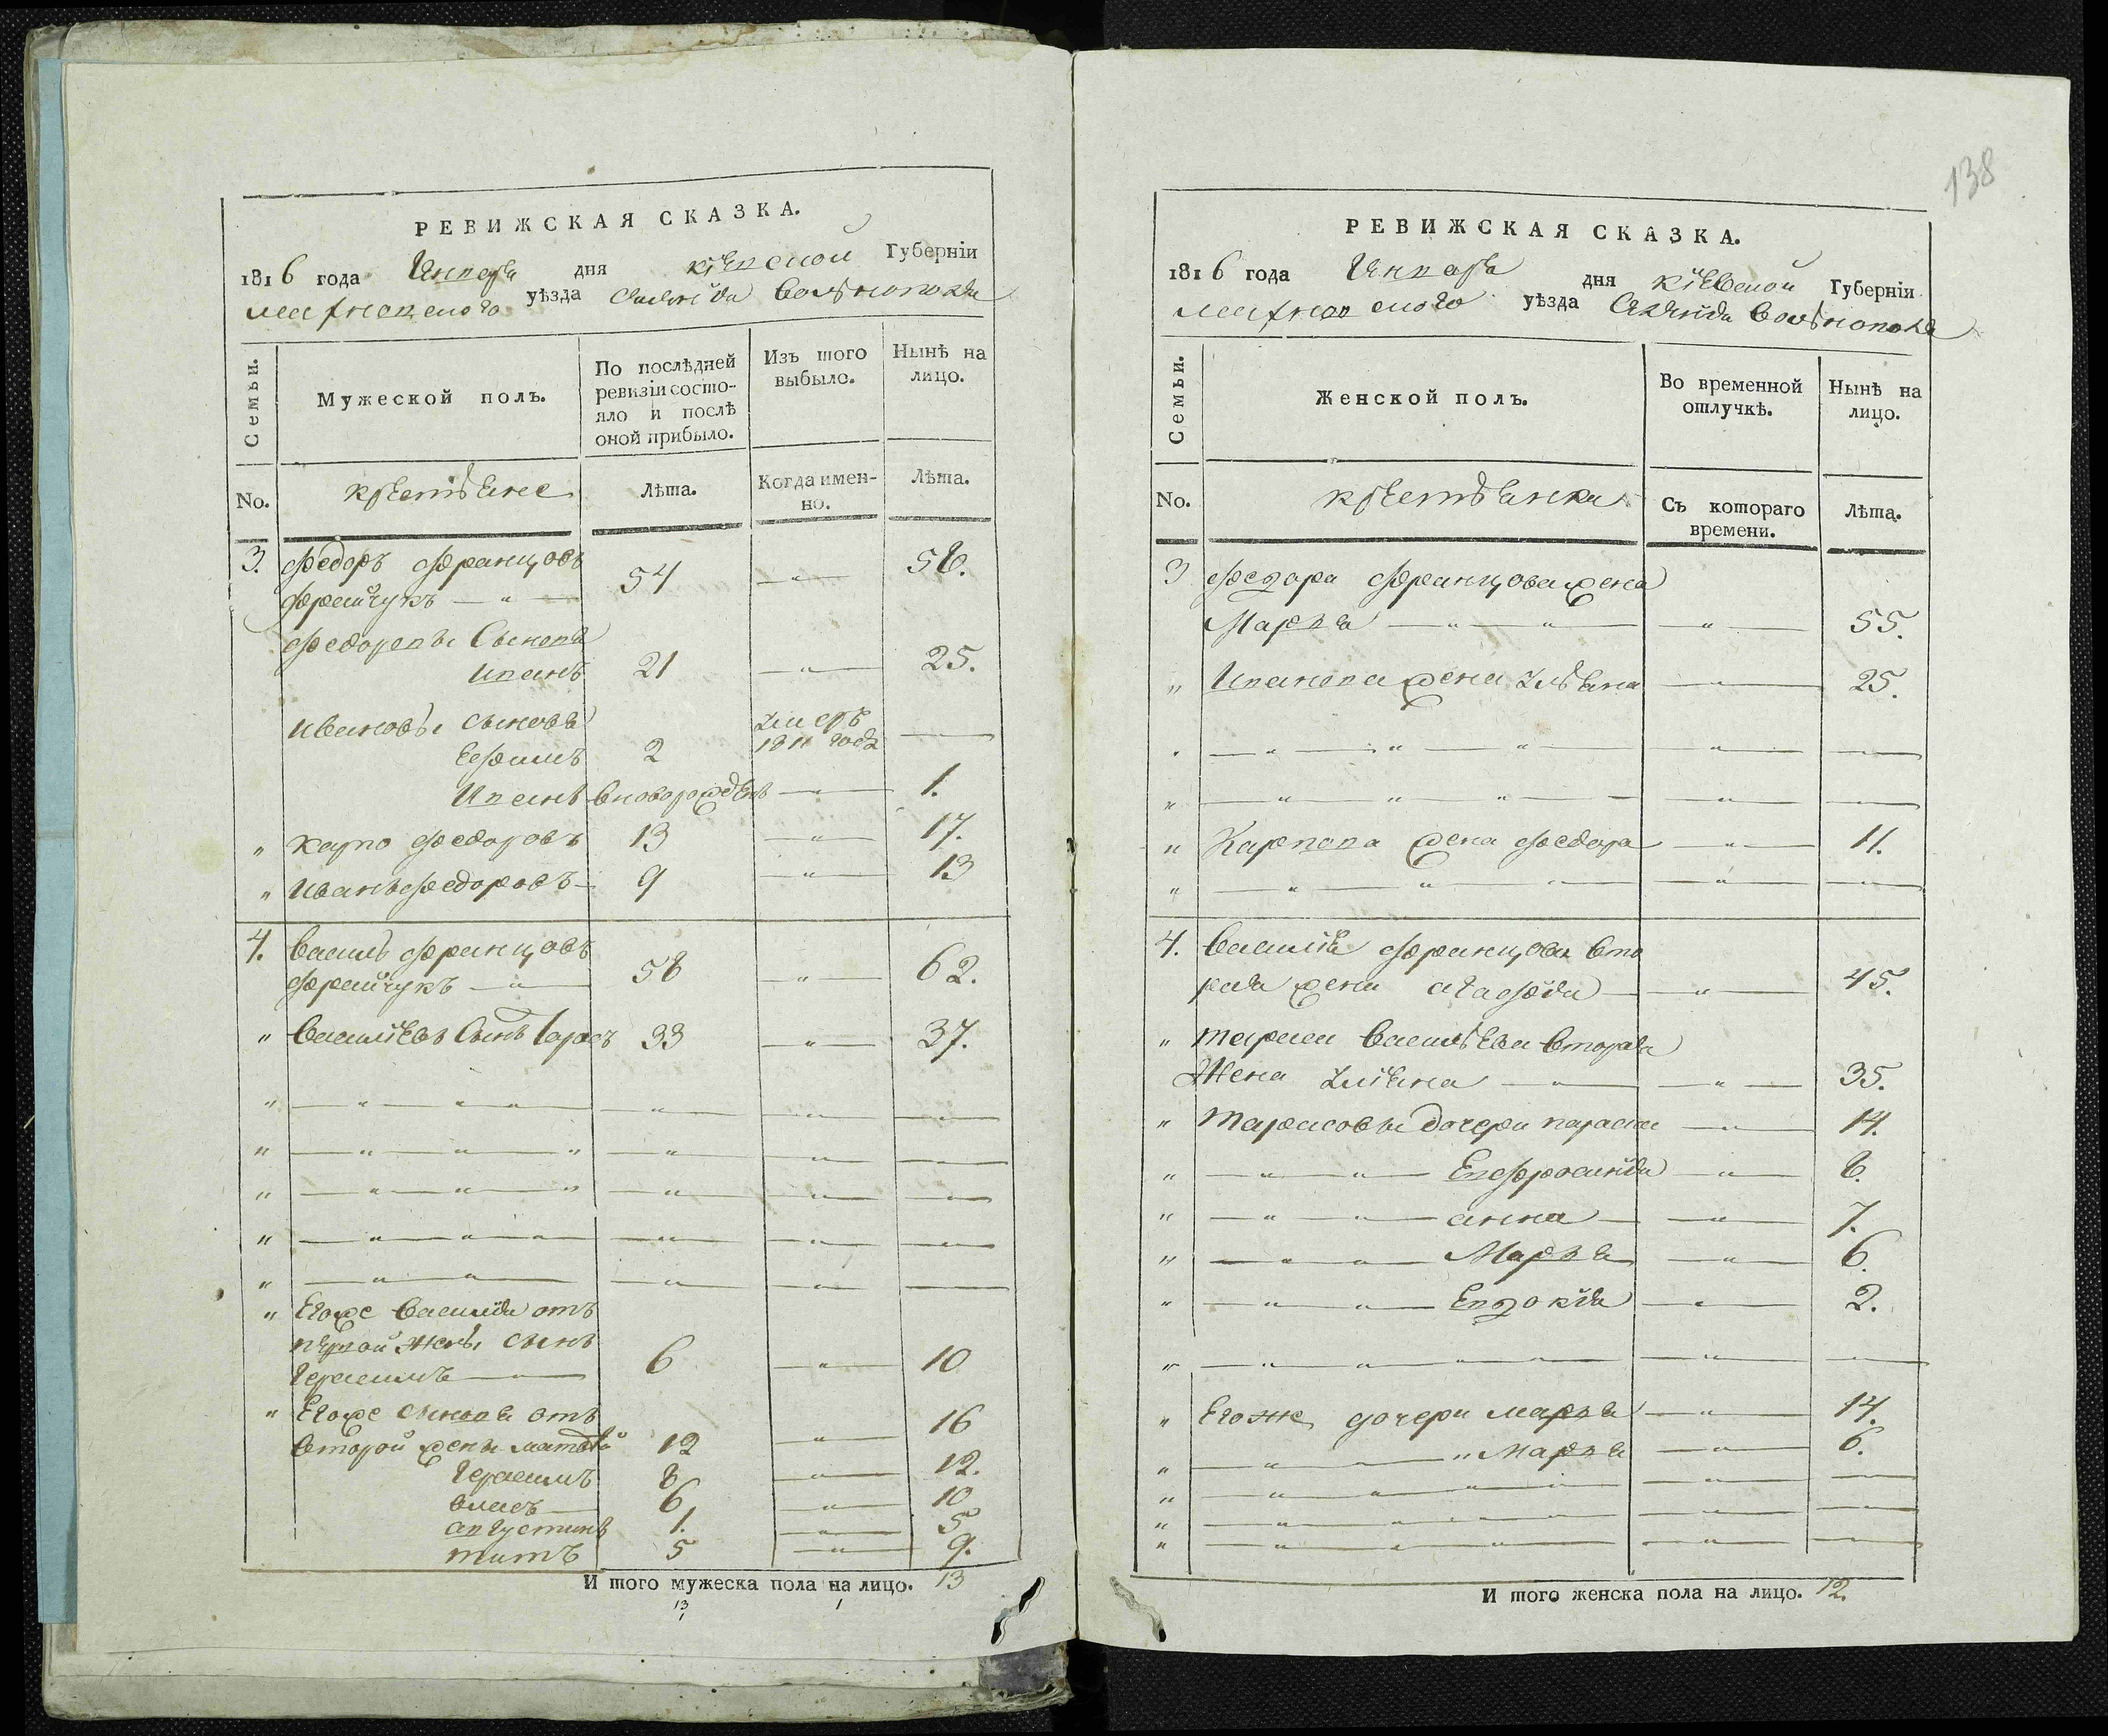 138
РЕВИЖСКАЯ СКАЗКА.
1816 года Генваря дня Кіевской Губерніи
уѣзда
Семьи.
Мужеской полъ.
По послѣдней ревизіи состояло и послѣ оной прибыло.
Изъ того выбыло.
Нынѣ на лицо.
No.
крестьяне
Лѣта.
Когда именно.
Лѣта.
3. Федоръ Францовъ
54 — 58.
Федоровы Сыновя
Иванъ 21 — 25.
Ивановы сыновя
Ефимъ 2 умеръ 1811 года —
Иванъ вноворожденъ — 1.
„ Карпо Федоровъ 13 — 17.
„ Иванъ Федоровъ 9 — 13
4. Василь Францовъ
58 — 62.
„ Василіевъ Сынъ Тарасъ 33 — 37.
„ Егоже Василія отъ
первой жены сынъ
Герасимъ 6 — 10
„ Егоже сыновя отъ
второй жены Матвѣй 12 — 16
Герасимъ 8 — 12.
Власъ 6 — 10
Августинъ 1. — 5
Титъ 5 — 9.
И того мужеска пола на лицо. 13
13 1
РЕВИЖСКАЯ СКАЗКА.
1816 года Генваря дня Кіевской Губерніи
уѣзда
Семьи.
Женской полъ.
Во временной отлучкѣ.
Нынѣ на лицо.
No.
крестьянки
Съ котораго времени.
Лѣта.
3 Федора Францова жена
Марья — 55.
„ Иванова жена Улѣяна — 25.
„ Карпова жена Федора — 11.
4. Василія Францова вто
рая жена Агафія — 45.
„ Тараса Василѣева вторая
Жена Уліяна — 35.
„ Тарасовы дочери Параска — 14.
Евфросинія — 8.
Анна — 7.
Марья — 6.
Евдокія — 2.
„ Егоже дочери Марья — 14.
„ Марья — 6.
И того женска пола на лицо. 12.